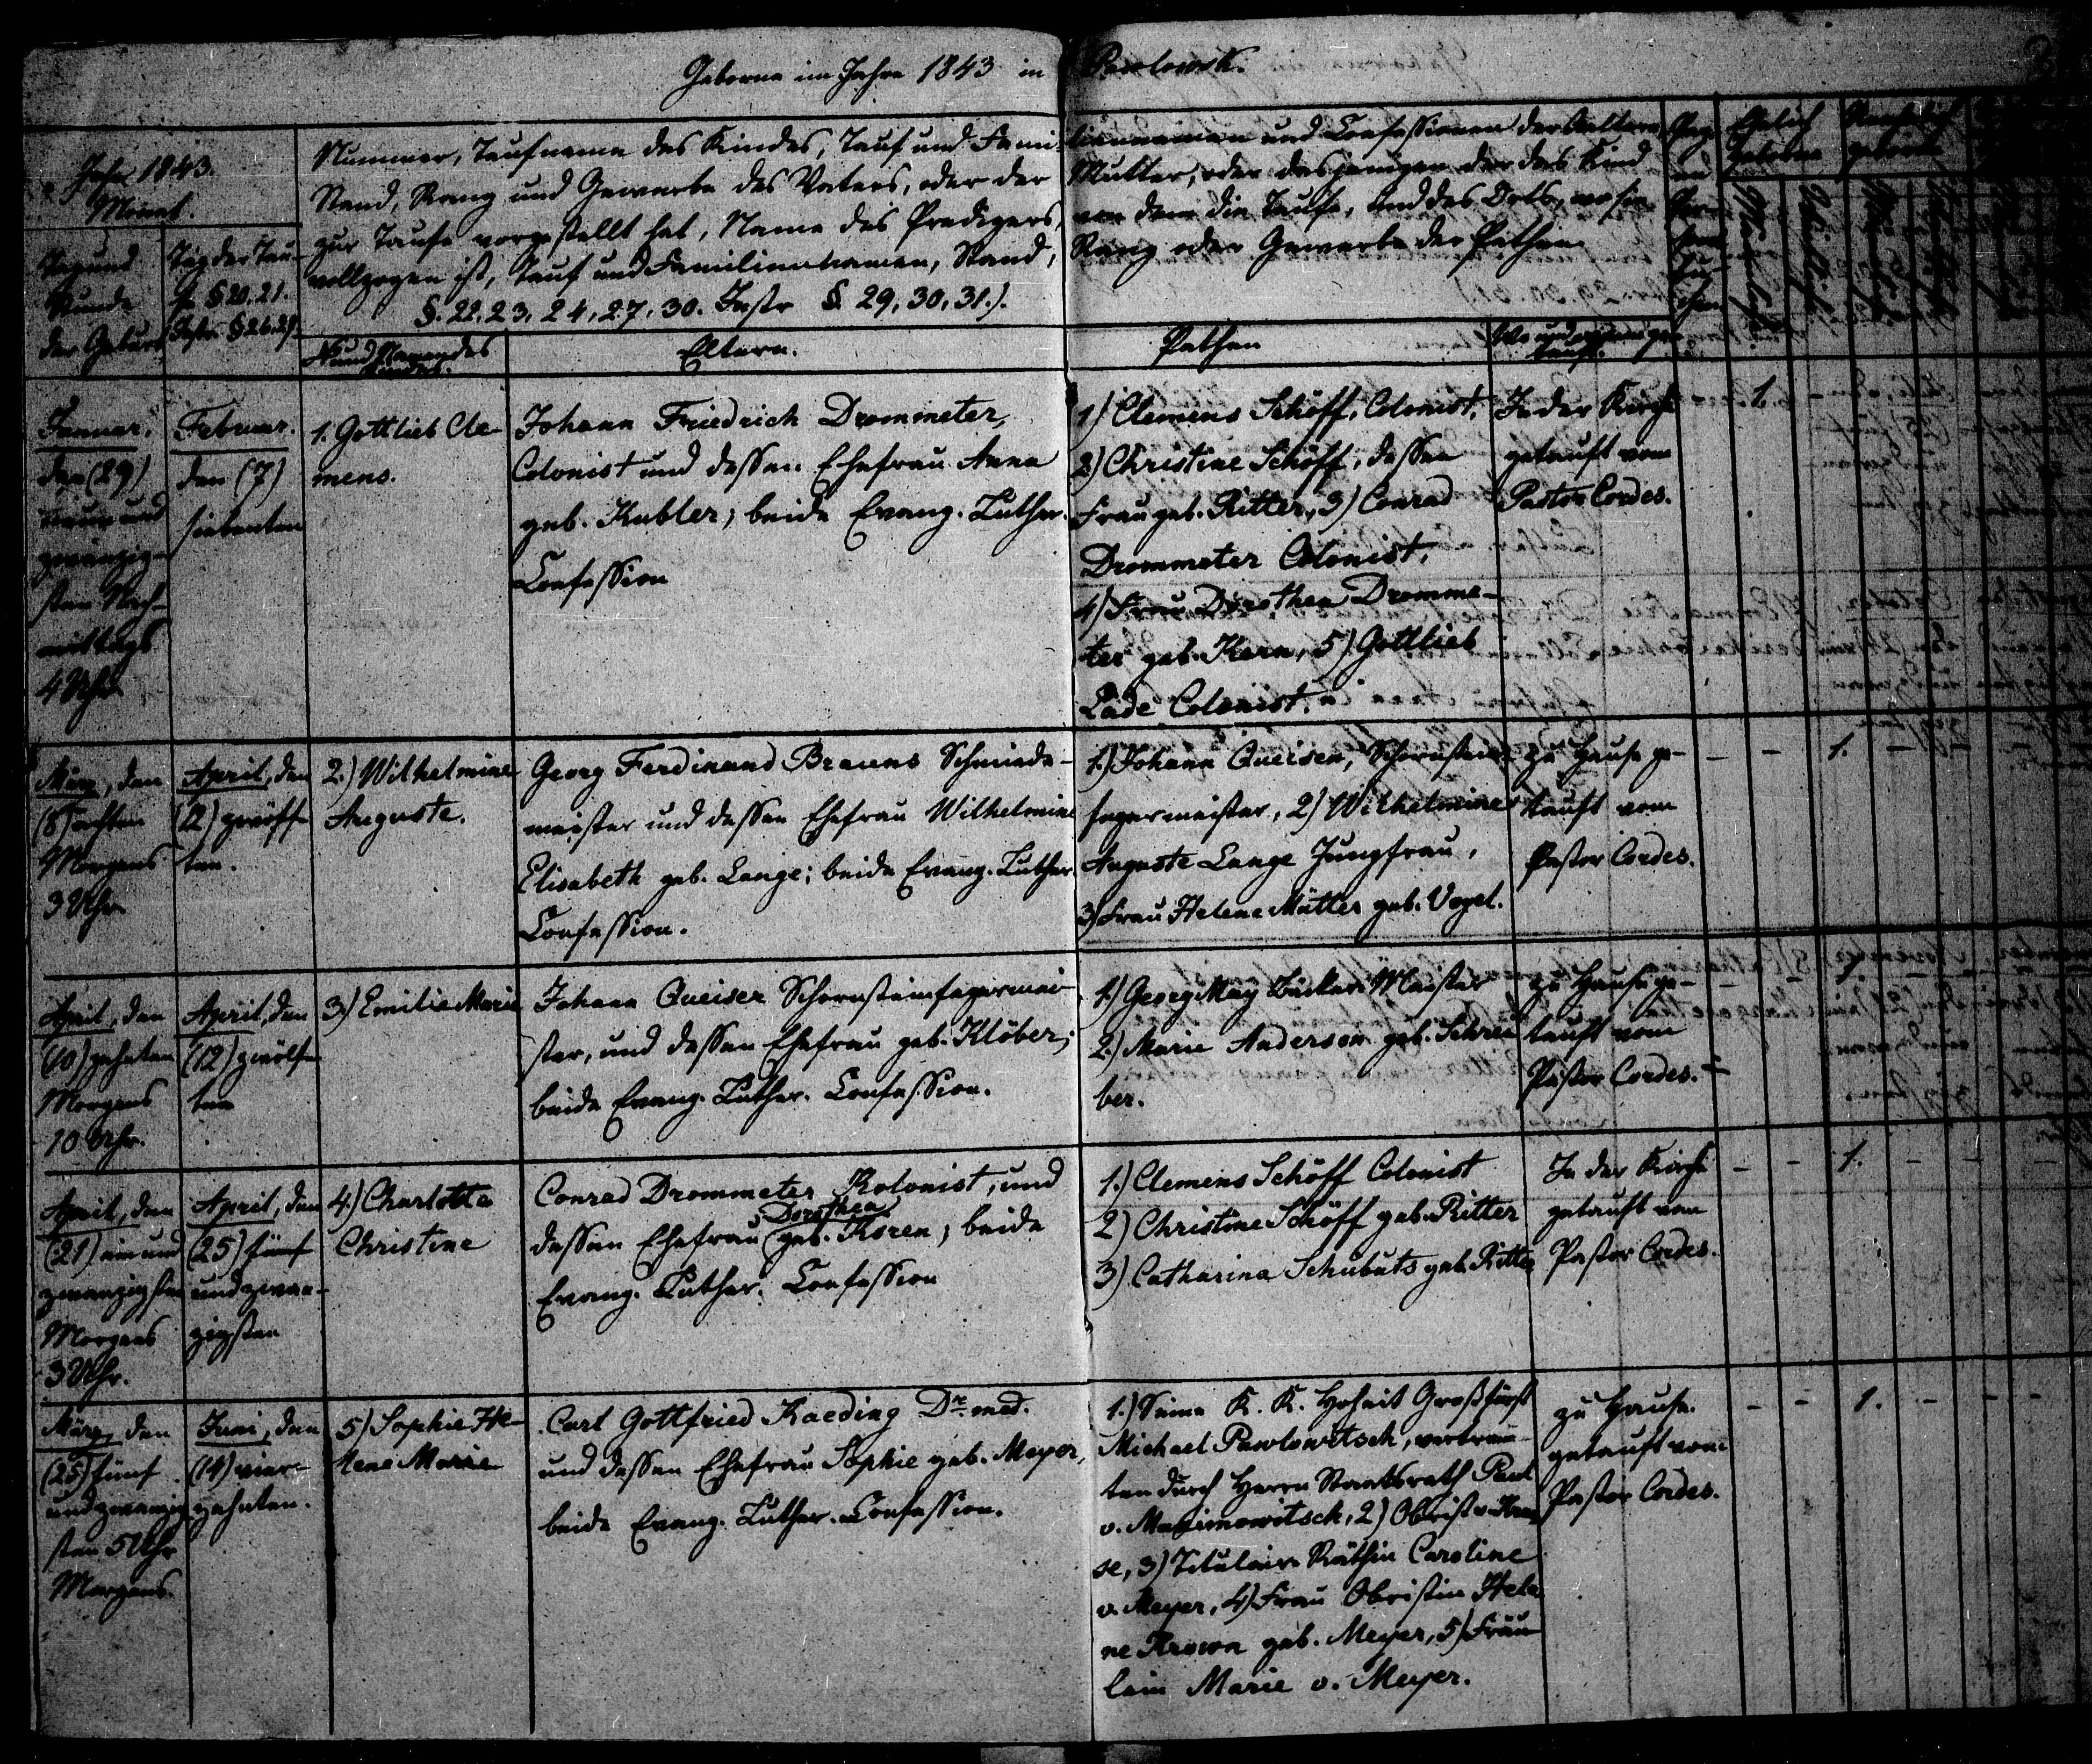 Geborne im Jahre 1843 in Pawlowsk.
Jahr 1843.
Monat.
Tag und
Stunde
der Geburt
Tag der Tau-
fe §20.21.
Instr. §26.29.
Nummer, Taufname des Kindes, Tauf und Fami-
Stand, Rang und Gewerbe des Vaters, oder der
zur Taufe vorgestellt hat, Name des Predigers,
vollzogen ist, Tauf und Familiennamen, Stand,
§. 22. 23. 24. 27. 30. Instr § 29, 30, 31.).
liennamen und Confessionen der Aeltern,
Mutter, oder desjenigen der das Kind
von dem die Taufe, und des Orts, wo sie
Rang oder Gewerbe der Pathen
No und Namen des
Kindes.
Eltern.
Pathen
Wo und von wem ge-
tauft.
Ehelich
Geborne
Januar,
den (29)
neun und
zwanzig-
sten Nach-
mittags
4 Uhr
Februar.
den (7)
siebenten
1. Gottlieb Cle-
mens.
Johann Friedrich Drommeter,
Colonist und dessen Ehefrau Anna
geb. Kubler; beide Evang. Luther.
Confession
1) Clemens Schöff, Colonist,
2) Christine Schöff, dessen
Frau geb. Ritter, 3) Conrad
Drommeter Colonist,
4) Frau Dorothea Dromme-
ter geb. Kern, 5) Gottlieb
Lade Colonist.
In der Kirche
getauft vom
Pastor Cordes.
1.
März, den
(8) achten
Morgens
3 Uhr
April, den
(12) zwölf-
ten.
2.) Wilhelmine
Auguste.
Georg Ferdinand Brauns Schmiede-
meister und dessen Ehefrau Wilhelmine
Elisabeth geb. Lange; beide Evang. Luther.
Confession.
1.) Johann Queisen, Schornstein-
fegermeister, 2) Wilhelmine
Auguste Lange Jungfrau,
3) Frau Helene Mütter geb. Vogel.
zu Hause ge-
tauft vom
Pastor Cordes.
- - 1. - -
April, den
(10) zehnten
Morgens
10 Uhr.
April, den
(12) zwölf-
ten
3.) Emilie Marie
Johann Queiser Schornsteinfegermei-
ster, und dessen Ehefrau geb. Klöber;
beide Evang. Luther. Confession.
1.) Georg May Bäcker Meister
2.) Marie Anderson geb. Schrei-
ber.
zu Hause ge-
tauft vom
Pastor Cordes.
- - 1. -
April, den
(21) ein und
zwanzigsten
Morgens
3 Uhr.
April, den
(25) fünf
und zwan-
zigsten
4.) Charlotte
Christine
Conrad Drommeter Kolonist, und
Dorothea
dessen Ehefrau geb. Koren; beide
Evang. Luther. Confession
1.) Clemens Schöff Colonist
2) Christine Schöff geb. Ritter
3) Catharina Schubuts geb. Ritter
In der Kirche
getauft von
Pastor Cordes.
- - 1. - -
März, den
(25) fünf
und zwanzig-
sten 5 Uhr
Morgens.
Juni, den
(14) vier-
zehnten.
5) Sophie He-
lene Marie
Carl Gottfried Kaeding Dr. med.
und dessen Ehefrau Sophie geb. Meyer,
beide Evang. Luther. Confession.
1.) Seine K. K. Hoheit Großfürst
Michael Pawlowitsch, vertre-
ten durch Herrn Staatsrath Paul
v. Maximowitsch, 2) Obrist v.
se, 3) Titulair Räthin Caroline
v. Meyer, 4) Frau Obristin Hele
ne geb. Meyer, 5) Fräu-
lein Marie v. Meyer.
zu Hause.
getauft vom
Pastor Cordes.
- - 1. - - -